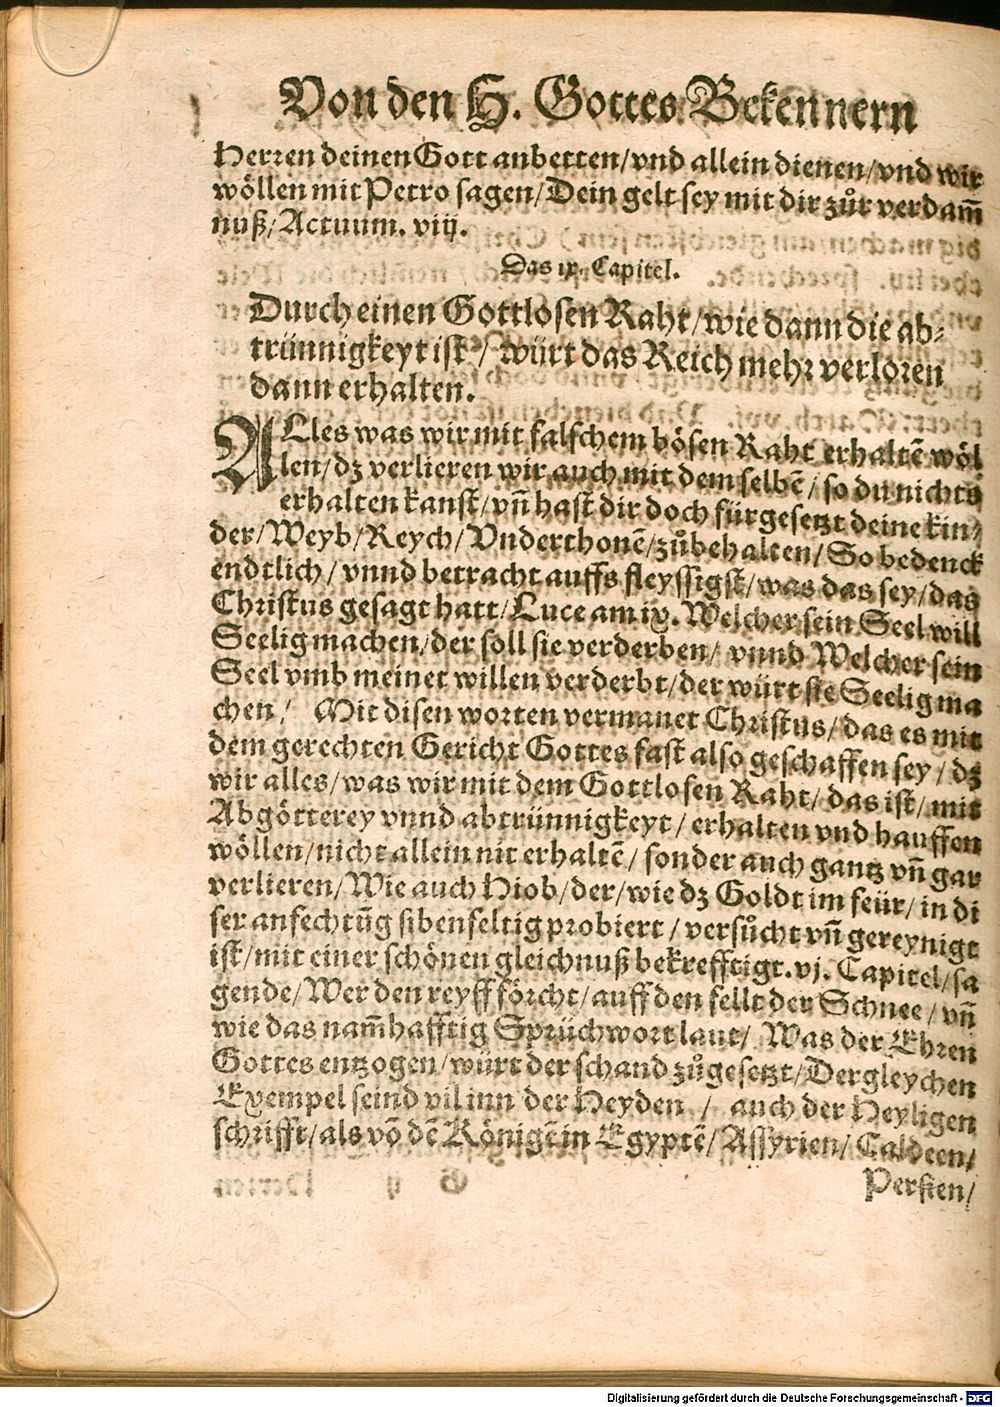 Von den H. Gottes Bekennern
Herren deinen Gott anbetten/vnd allein dienen/vnd wir
wöllen mit Petro sagen/Dein gelt sey mit dir zůr verdam̄
nuß/Actuum. viij.
Das ix. Capitel.
Durch einen Gottlosen Raht/wie dann die ab-
trünnigkeyt ist/ würt das Reich mehr verloren
dann erhalten.
ALles was wir mit falschem bösen Raht erhaltē wöl
len/dz verlieren wir auch mit dem selbē/ so du nichts
erhalten kanst/vn̄ hast dir doch fürgesetzt deine kin/
der/Weyb/Reych/Vnderthonē/zůbehalten/So bedenck
endtlich/vnnd betracht auffs fleyssigst/was das sey/das
Christus gesagt hatt/Luce am ix. Welcher sein Seel will
Seelig machen/der soll sie verderben/ vnnd Welcher sein
Seel vmb meinet willen verderbt/der würt sie Seelig ma
chen/ Mit disen worten vermanet Christus/das es mit
dem gerechten Gericht Gottes fast also geschaffen sey/dz
wir alles/was wir mit dem Gottlosen Raht/das ist/mit
Abgötterey vnnd abtrünnigkeyt/erhalten vnd hauffen
wöllen/nicht allein nit erhaltē/sonder auch gantz vn̄ gar
verlieren/Wie auch Hiob/der/wie dz Goldt im feür/in di
ser anfechtūg sibenfeltig probiert/versůcht vn̄ gereynigt
ist/mit einer schönen gleichnuß bekrefftigt. vj. Capitel/sa
gende/Wer den reyff förcht/auff den fellt der Schnee/vn̄
wie das nam̄hafftig Sprüchwort laut/ Was der Ehren
Gottes entzogen/würt der schand zůgesetzt/Dergleychen
Exempel seind vil inn der Heyden / auch der Heyligen
schrifft/als vō dē Königē in Egyptē/Assyrien/Caldeen/
Persien/
Digitalisierung gefördert durch die Deutsche Forschungsgemeinschaft - DFG